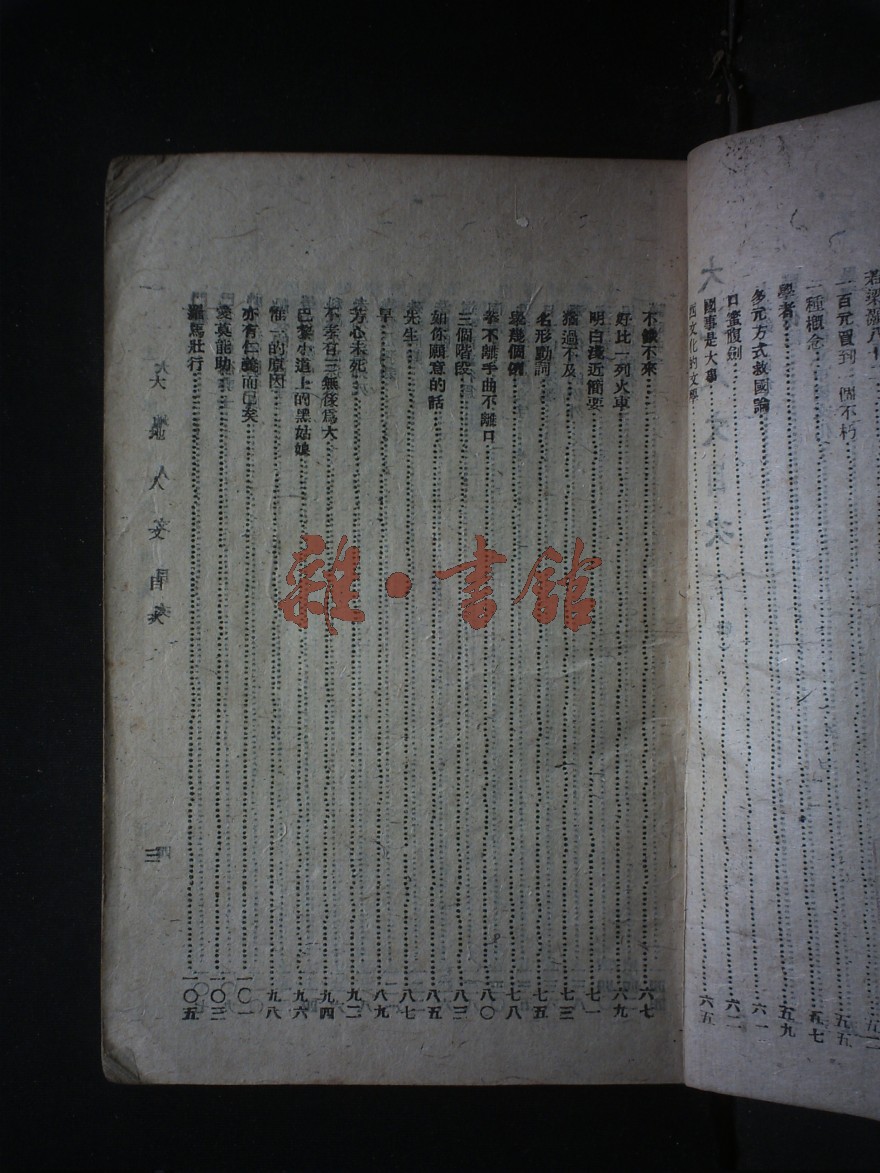 一百元買到一個不朽……五五
二種概念……五七
學者……五九
多元方式救國論……六一
口蜜腹劍……六二
國事是大事……六五
西文化的文學
不鐵不來……六七
好比一列火車……六九
明白淺近簡要……七一
猶過不及……七三
名形動詞……七五
舉幾個例……七八
拳不離手曲不離口……八〇
三個階段……八三
如你願意的話……八五
先生……八七
早……八九
芳心未死……九二
不孝有三無後爲大……九四
巴黎小道上的黑姑娘……九六
惟一的原因……九八
亦有仁義而已矣……一〇一
愛莫能助……一〇三
羅馬壯行……一〇五
雜·書館